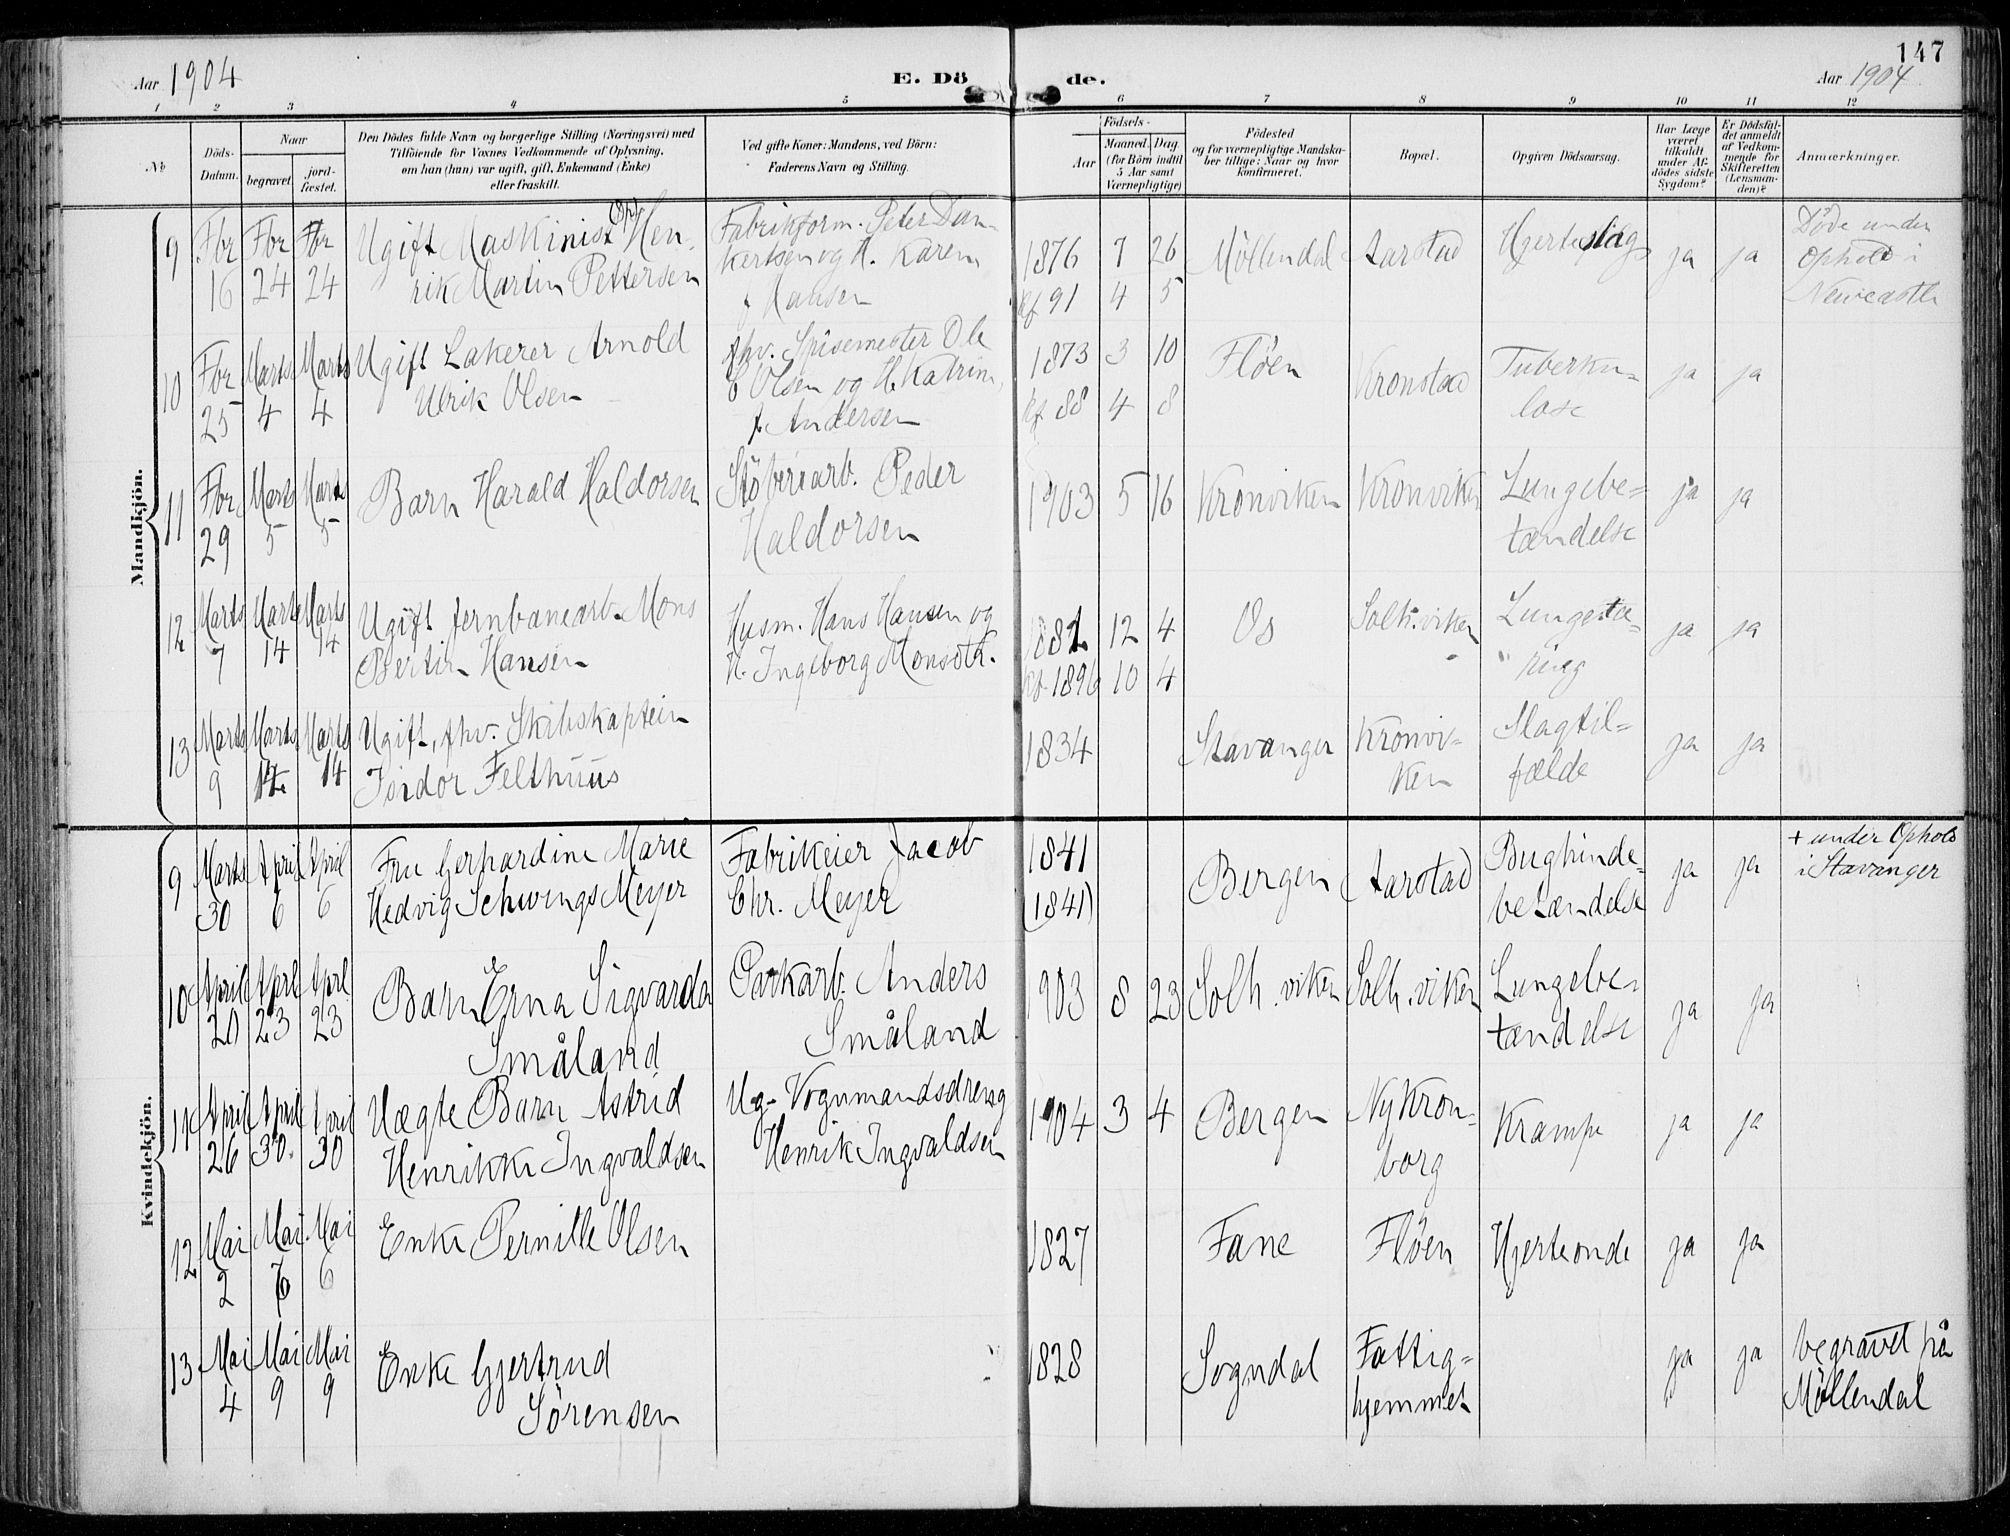 147
Aar 1904
E. Dö
de.
Aar 1904
1 2 3 4 5 6 7 8 9 10 11 12
No
Döds-
Datum.
Naar
begravet.
jord-
fæstet.
Den Dödes fulde Navn og borgerlige Stilling (Næringsvei) med
Tilföiende for Voxnes Vedkommende af Oplysning,
om han (hun) var ugift, gift, Enkemand (Enke)
eller fraskilt.
Ved gifte Koner: Mandens, ved Börn:
Faderens Navn og Stilling.
Födsels-
Aar
Maaned. Dag.
(for Börn indtil
5 Aar samt
Værnepligtige)
Födested
og for værnepligtige Mandska-
ber tillige: Naar og hvor
konfirmeret.
Bopæl.
Opgiven Dödsaarsag.
Har Læge
været
tilkaldt
under Af-
dödes sidste
Sygdom?
Er Dödsfal-
det anmeldt
af Vedkom-
mende for
Skifteretten
(Lensman-
den)?
Anmærkninger.
Mandkjön.
9 Fbr 16 Fbr 24 Fbr 24 Ugift Maskinist Hen-
rik Martin Pettersen
Fabrikform. Peter Dan-
kertsen og H. Karen
f Hansen
1876 7 26
kf 91 4 5
Möllendal Aarstad Hjerteslag ja ja
Døde under
Ophold i
Newcastle
10 Fbr 25 Marts 4 Marts 4 Ugift Lakerer Arnold
Ulrik Olsen
fhv. Spisemester Ole
Olsen og H. Katrine
f. Andersen
1873 3 10
kf 88 4 8
Fløen Kronstad Tuberku-
lose
ja ja
11 Fbr 29 Marts 5 Marts 5 Barn Harald Haldorsen
Støberiarb. Peder
Haldorsen
1903 5 16 Kronviken Kronviken Lungebe-
tændelse
ja ja
12 Marts 7 Marts 14 Marts 14 Ugift Jernbanearb. Mons
Bertin Hansen
Husm. Hans Hansen og
H. Ingeborg Monsdtr.
1881 12 4
kf. 1896 10 4
Os Solh.viken Lungetæ-
ring
ja ja
13 Marts 9 Marts 14 Marts 14 Ugift, fhv. Skibskaptein
Isidor Felthuus
1834 Stavanger Kronvi-
ken
Slagtil-
fælde
ja ja
Kvindekjön.
9 Marts 30 April 6 April 6 Fru Gerhardine Marie
Hedvig Schwings Meyer
Fabrikeier Jacob
Chr. Meyer
1841
(1841)
Bergen Aarstad Bughinde-
betændelse
ja ja
+ under Ophold
i Stavanger
10 April 20 April 23 April 23 Barn Erna Sigvarda
Småland
Parkarb. Anders
Småland
1903 8 23 Solh.viken Solh.viken Lungebe-
tændelse
ja ja
11 April 26 April 30. April 30 Uægte Barn Astrid
Henrikke Ingvaldsen
Ug. Vognmandsdreng
Henrik Ingvaldsen
1904 3 4 Bergen Ny Kron-
borg
Krampe ja ja
12 Mai 2 Mai 6 Mai 6 Enke Pernille Olsen
1827 Fane Fløen Hjerteonde ja ja
13 Mai 4 Mai 9 Mai 9 Enke Gjertrud
Sørensen
1828 Sogndal Fattig-
hjemmet
ja ja
begravet på
Møllendal